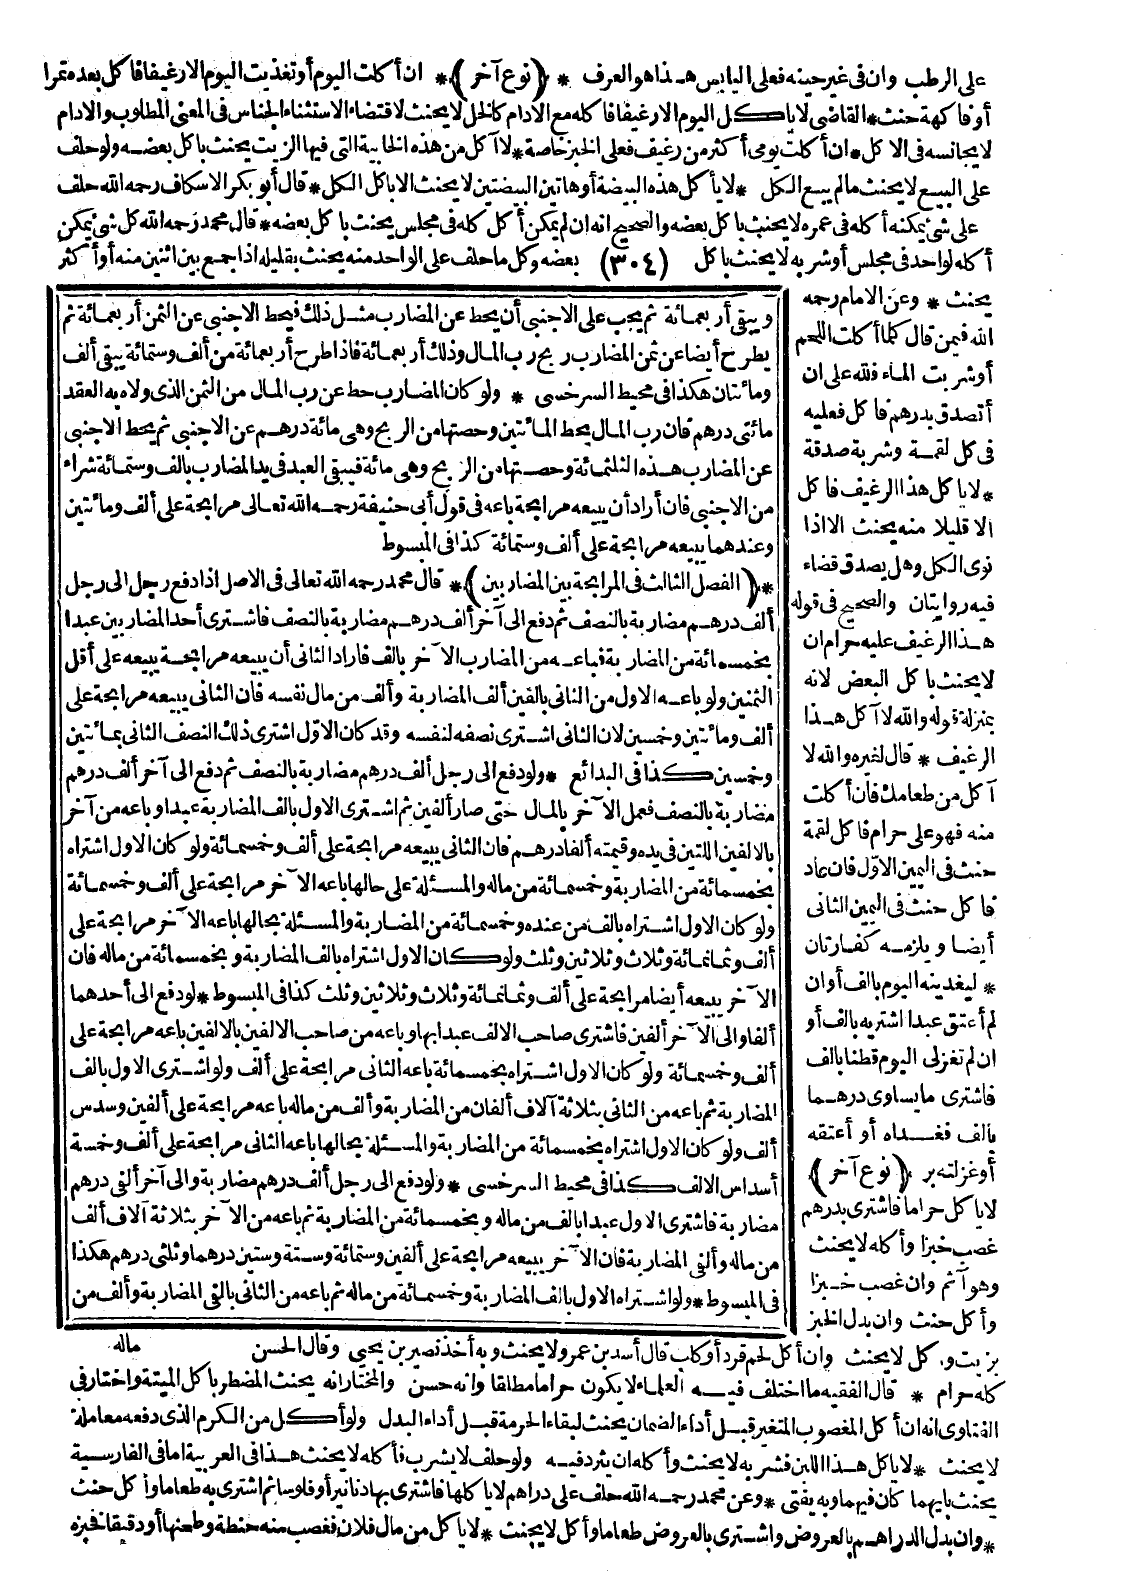 على الرطب وان فى غير حينه فعلى اليابس هذا هو العرف * (نوع آخر) * ان أكلت اليوم أو تغذيت اليوم الا رغيفا فا كل بعده تمرا
أو فاكهة حنث * القاضى لا يأكل اليوم الا رغيفا فا كله مع الادام كالخل لا يحنث لاقتضاء الاستثناء الجناس فى المعنى المطلوب والادام
لا يجانسه فى الاكل * ان أكلت يومى أكثر من رغيف فعلى الخبز خاصة * لا آكل من هذه الخابية التى فيها الزيت يحنث باكل بعضه ولو حلف
على البيع لا يحنث مالم يبع الكل * لا يأكل هذه البيضة أو هاتين البيضتين لا يحنث الا باكل الكل * قال أبو بكر الاسكاف رحمه الله حلف
على شئ يمكنه أكله فى عمره لا يحنث باكل بعضه والصحيح انه ان لم يمكن أكل كله فى مجلس يحنث باكل بعضه * قال محمد رحمه الله كل شئ يمكن
أكله لواحد فى مجلس أو شربه لا يحنث باكل (٣٠٤) بعضه وكل ما حلف على الواحد منه يحنث بقليله اذا جمع بين اثنين منه أو أكثر
يحنث * وعن الامام رحمه
الله فيمن قال كلما أكلت اللحم
أو شربت الماء فلله على ان
أتصدق بدرهم فا كل فعليه
فى كل لقمة وشربة صدقة
* لا يا كل هذا الرغيف فا كل
الا قليلا منه يحنث الا اذا
نوى الكل وهل يصدق قضاء
فيه روايتان والصحيح فى قوله
هذا الرغيف عليه حرام ان
لا يحنث باكل البعض لانه
بمنزلة قوله والله لا آكل هذا
الرغيف * قال لغيره والله لا
آكل من طعامك فان أكلت
منه فهو على حرام فا كل لقمة
حنث فى اليمين الاول فان عاد
فا كل حنث فى اليمين الثانى
أيضا ويلزمه كفارتان
* ليغدينه اليوم بالف أو ان
لم أعتق عبدا اشتريه بالف أو
ان لم تغزلى اليوم قطنا بالف
فاشترى ما يساوى درهما
بالف فغداه أو أعتقه
أو غزلته بر * (نوع آخر) *
لا يا كل حراما فاشترى بدرهم
غصب خبزا وأكله لا يحنث
وهو آثم وان غصب خبزا
وأكل حنث وان بدل الخبز
ويبقى أربعمائة ثم يجب على الاجنبى أن يحط عن المضارب مثل ذلك فيحط الاجنبى عن الثمن أربعمائة ثم
يطرح أيضا عن ثمن المضارب ربح رب المال وذلك أربعمائة فاذا طرح أربعمائة من ألف وستمائة يبقى ألف
ومائتان هكذا فى محيط السرخسى * ولو كان المضارب حط عن رب المال من الثمن الذى ولاه به العقد
مائتى درهم فان رب المال يحط المائتين وحصتها من الربح وهى مائة درهم عن الاجنبى ثم يحط الاجنبى
عن المضارب هذه الثلثمائة وحصتها من الربح وهى مائة فيبقى العبد فى يد المضارب بالف وستمائة شراء
من الاجنبى فان أراد أن يبيعه مرابحة باعه فى قول أبى حنيفة رحمه الله تعالى مرابحة على ألف ومائتين
وعندهما يبيعه مرابحة على ألف وستمائة كذا فى المبسوط
* (الفصل الثالث فى المرابحة بين المضاربين) * قال محمد رحمه الله تعالى فى الاصل اذا دفع رجل الى رجل
ألف درهم مضاربة بالنصف ثم دفع الى آخر ألف درهم مضاربة بالنصف فاشترى أحد المضاربين عبدا
بخمسمائة من المضاربة فباعه من المضارب الآخر بالف فاراد الثانى أن يبيعه مرابحة يبيعه على أقل
الثمنين ولو باعه الاول من الثانى بالفين ألف المضاربة وألف من مال نفسه فان الثانى يبيعه مرابحة على
ألف ومائتين وخمسين لان الثانى اشترى نصفه لنفسه وقد كان الاول اشترى ذلك النصف الثانى بمائتين
وخمسين كذا فى البدائع * ولو دفع الى رجل ألف درهم مضاربة بالنصف ثم دفع الى آخر ألف درهم
مضاربة بالنصف فعمل الآخر بالمال حتى صار ألفين ثم اشترى الاول بالف المضاربة عبدا وباعه من آخر
بالالفين اللتين فى يده وقيمته ألفا درهم فان الثانى يبيعه مرابحة على ألف وخمسمائة ولو كان الاول اشتراه
بخمسمائة من المضاربة وخمسمائة من ماله والمسئلة على حالها باعه الآخر مرابحة على ألف وخمسمائة
ولو كان الاول اشتراه بالف من عنده وخمسمائة من المضاربة والمسئلة بحالها باعه الآخر مرابحة على
ألف وثمانمائة وثلاث وثلاثين وثلث ولو كان الاول اشتراه بالف المضاربة وبخمسمائة من ماله فان
الآخر يبيعه أيضا مرابحة على ألف وثمانمائة وثلاث وثلاثين وثلث كذا فى المبسوط * لو دفع الى أحدهما
ألفا والى الآخر ألفين فاشترى صاحب الالف عبدا بها وباعه من صاحب الالفين بالالفين باعه مرابحة على
ألف وخمسمائة ولو كان الاول اشتراه بخمسمائة باعه الثانى مرابحة على ألف ولو اشترى الاول بالف
المضاربة ثم باعه من الثانى بثلاثة آلاف ألفان من المضاربة وألف من ماله باعه مرابحة على ألفين وسدس
ألف ولو كان الاول اشتراه بخمسمائة من المضاربة والمسئلة بحالها باعه الثانى مرابحة على ألف وخمسة
أسداس الالف كذا فى محيط السرخسى * ولو دفع الى رجل ألف درهم مضاربة والى آخر ألفى درهم
مضاربة فاشترى الاول عبدا بالف من ماله وبخمسمائة من المضاربة ثم باعه من الآخر بثلاثة آلاف ألف
من ماله وألفى المضاربة فان الآخر يبيعه مرابحة على ألفين وستمائة وستة وستين درهما وثلثى درهم هكذا
فى المبسوط * ولو اشتراه الاول بالف المضاربة وخمسمائة من ماله ثم باعه من الثانى بالفى المضاربة وألف من
ماله
بزيت وكل لا يحنث وان أكل لحم قرد أو كلب قال أسد بن عمرو لا يحنث وبه أخذ نصير بن يحيى وقال الحسن
كله حرام * قال الفقيه ما اختلف فيه العلماء لا يكون حراما مطلقا وانه حسن والمختار انه يحنث المضطر باكل الميتة واختار فى
الفتاوى انه ان أكل المغصوب المتغير قبل أداء الضمان يحنث لبقاء الحرمة قبل أداء البدل ولو أكل من الكرم الذى دفعه معاملة
لا يحنث * لا ياكل هذا اللبن فشربه لا يحنث وأكله ان يثرد فيه ولو حلف لا يشرب فأكله لا يحنث هذا فى العربية اما فى الفارسية
يحنث بايهما كان فيهما وبه يفتى * وعن محمد رحمه الله حلف على دراهم لا ياكلها فاشترى بها دنانير أو فلوسا ثم اشترى به طعاما وأكل حنث
* وان بدل الدراهم بالعروض واشترى بالعروض طعاما وأكل لا يحنث * لا يا كل من مال فلان فغصب منه حنطة وطحنها أو دقيقا فخبزه